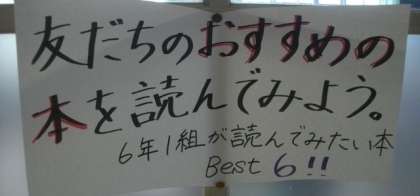 友だちのおすすめの
本を読んでみよう。
6年1組が読んでみたい本
Best 6!!